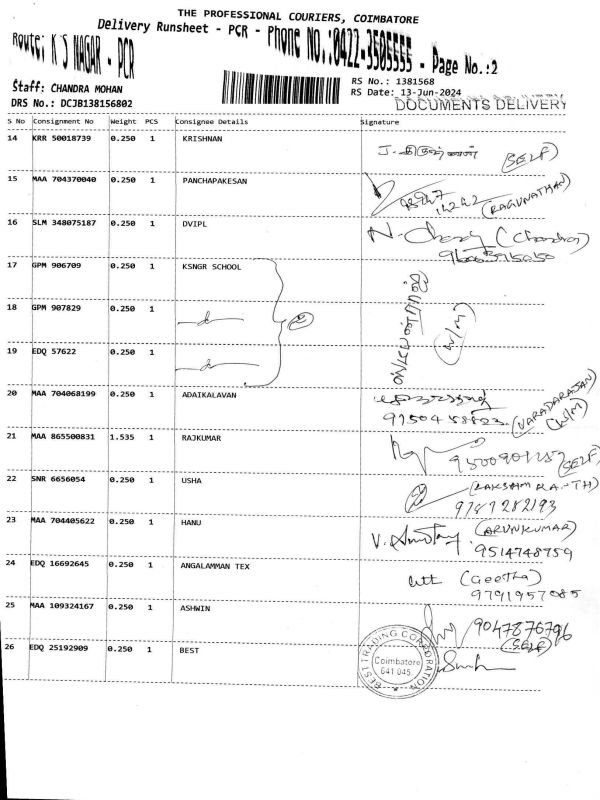 THE PROFESSIONAL COURIERS, COIMBATORE
Delivery Runsheet - PCR - Phone NO.:0422-3505555 - Page No.:2
Route: K S NAGAR - PCR
Staff: CHANDRA MOHAN
DRS No.: DCJB138156802
RS No.: 1381568
RS Date: 13-Jun-2024
DOCUMENTS DELIVERY
S No Consignment No Weight PCS Consignee Details Signature
14 KRR 50018739 0.250 1 KRISHNAN
(SELF)
15 MAA 704370040 0.250 1 PANCHAPAKESAN
(RAGUNATHAN)
16 SLM 348075187 0.250 1 DVIPL
(Chandra)
17 GPM 906709 0.250 1 KSNGR SCHOOL
18 GPM 907829 0.250 1
19 EDQ 57622 0.250 1
20 MAA 704068199 0.250 1 ADAIKALAVAN
(VARADARAJAN)
21 MAA 865500831 1.535 1 RAJKUMAR
(SELF)
22 SNR 6656054 0.250 1 USHA
9787282193
23 MAA 704405622 0.250 1 HANU
(ARUNKUMAR)
9514748759
24 EDQ 16692645 0.250 1 ANGALAMMAN TEX
(Geetha)
9791957085
25 MAA 109324167 0.250 1 ASHWIN
9047876796
(SELF)
26 EDQ 25192909 0.250 1 BEST
BEST TRADING CORPORATION
Coimbatore
641 045